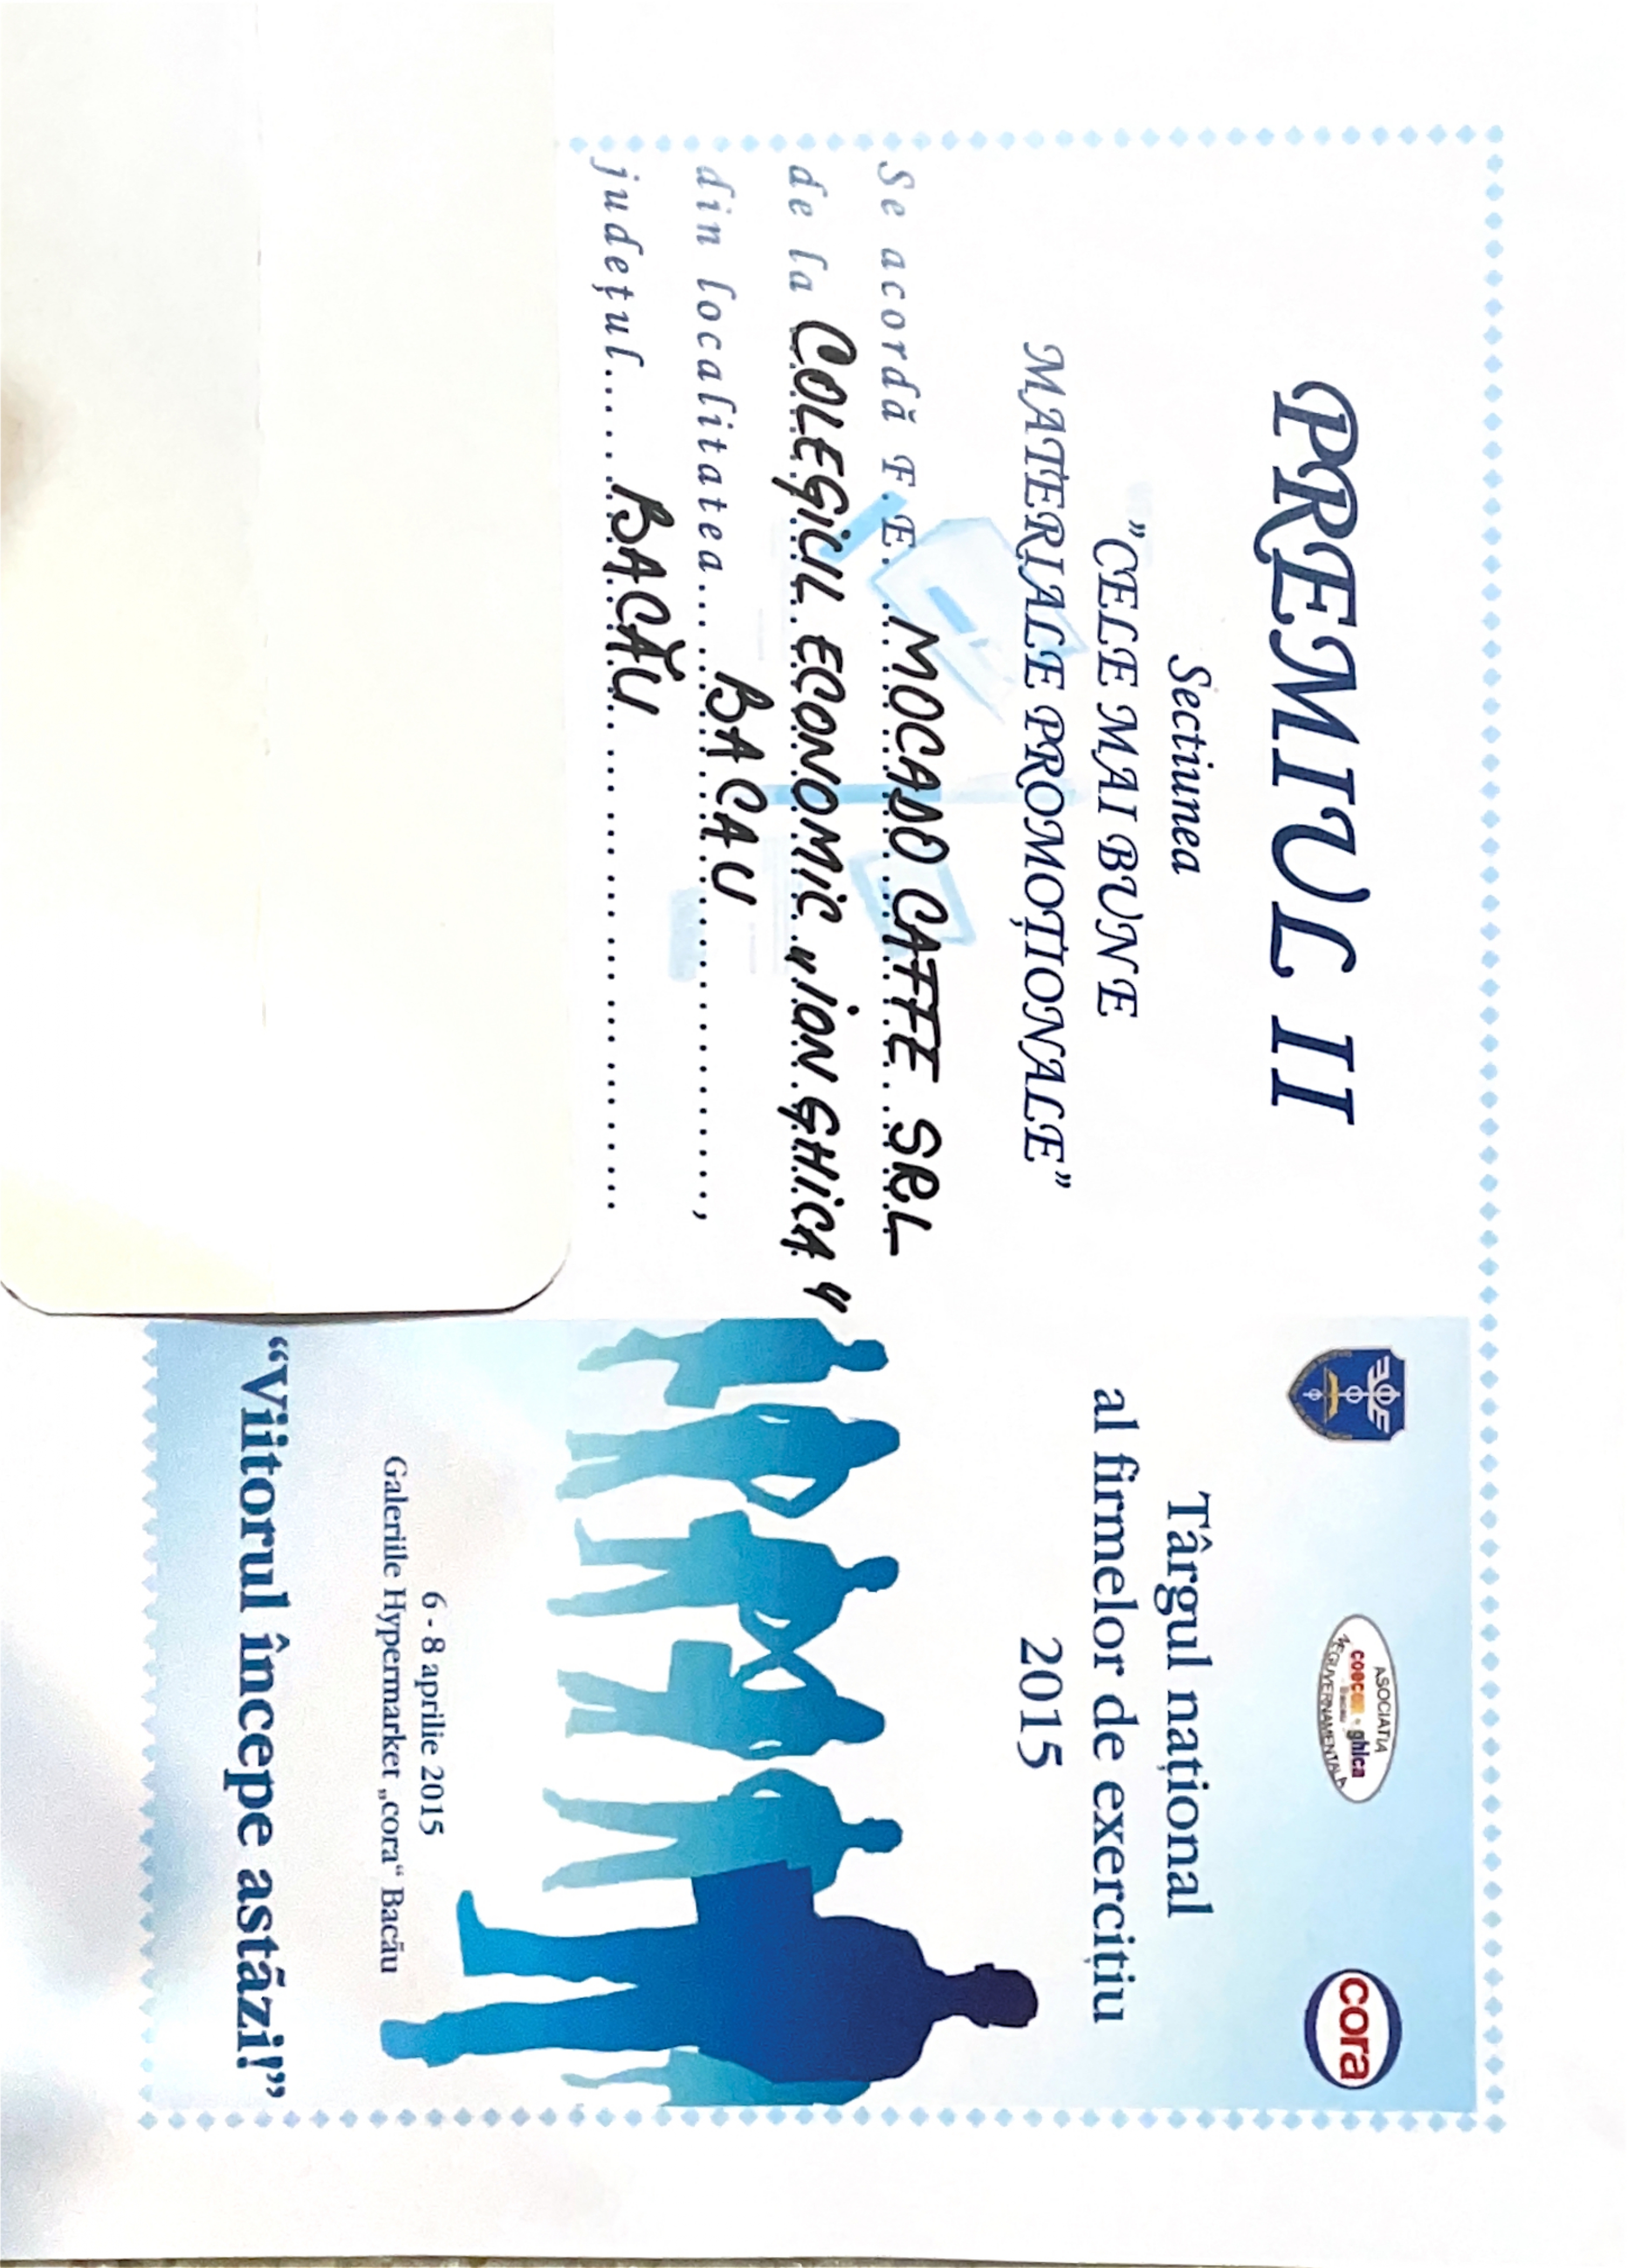 PREMIUL II
Sectiunea
”CELE MAI BUNE
MATERIALE PROMOȚIONALE”
Se acordă F.E. MOCADO CAFFE SRL
de la COLEGIUL ECONOMIC „ION GHICA"
din localitatea.... BACAU ..............................,
județul...... BACĂU ..............................
ASOCIATIA
coecon - ghica
Bacau
NEGUVERNAMENTALA
cora
Târgul național
al firmelor de exercițiu
2015
6 - 8 aprilie 2015
Galeriile Hypermarket „cora“ Bacău
“Viitorul începe astăzi!”